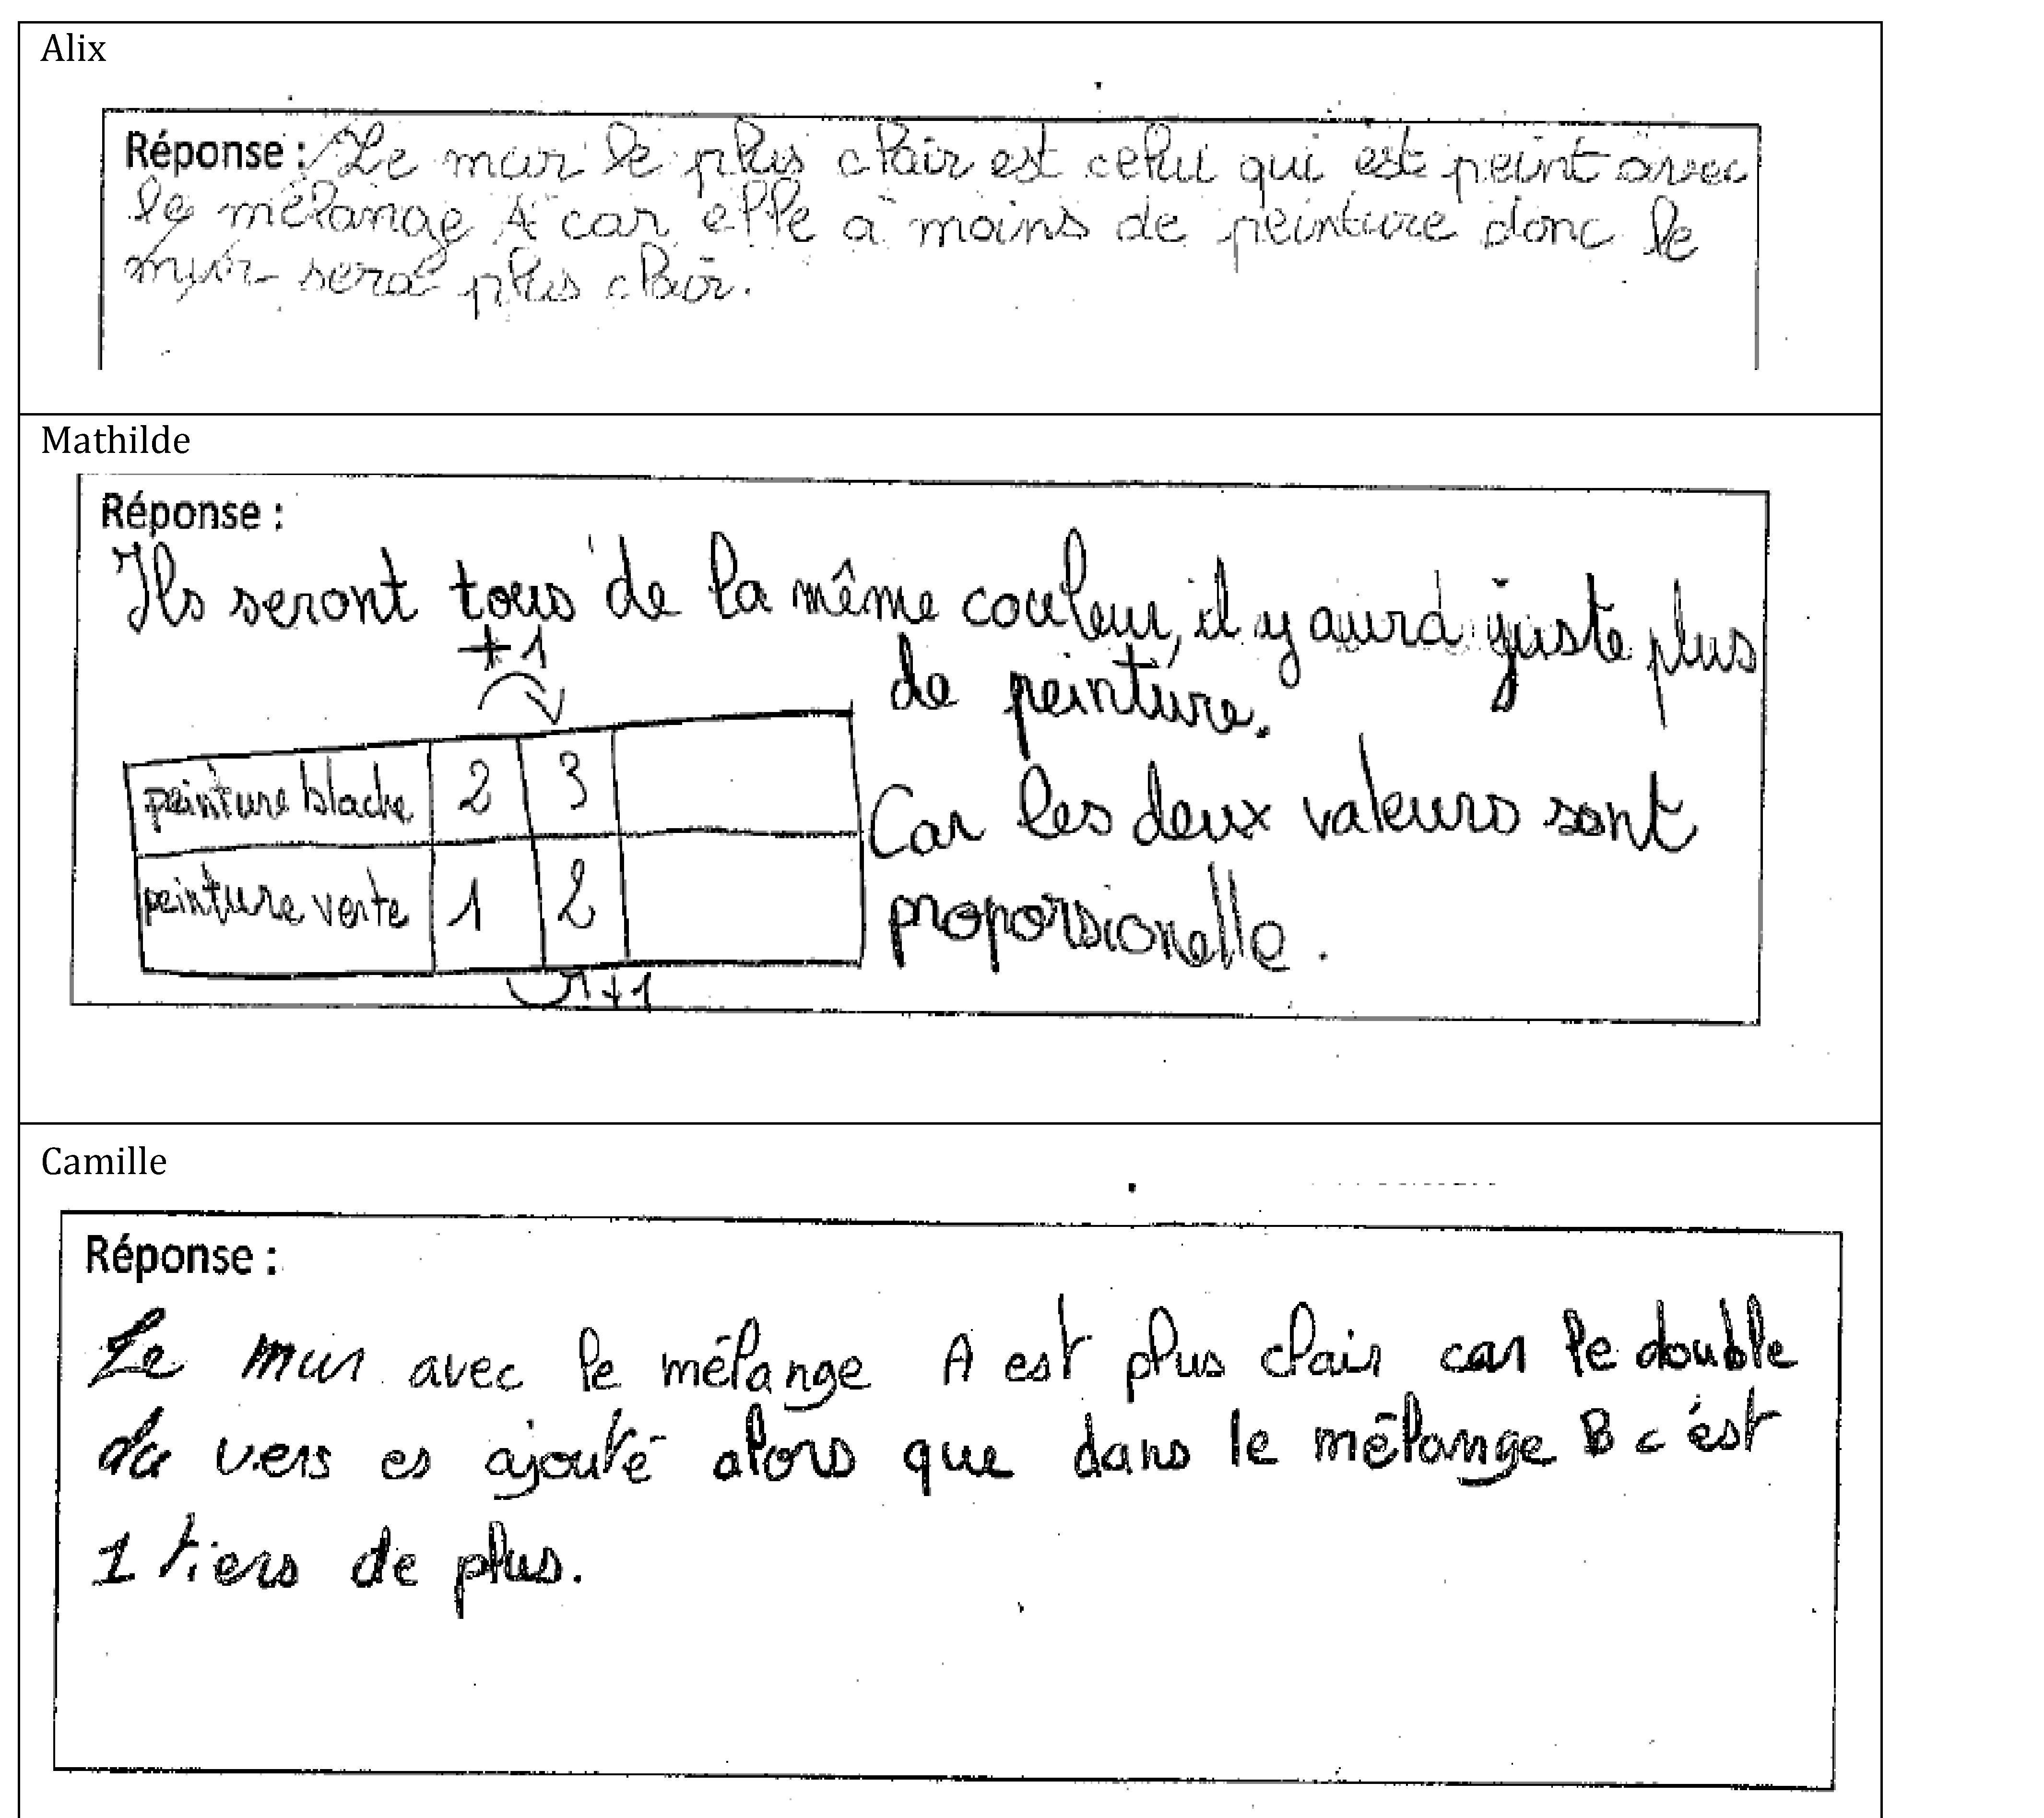 Alix
Réponse : Le mur le plus clair est celui qui est peint avec
le mélange A car elle a moins de peinture donc le
mur sera plus clair.
Mathilde
Réponse :
Ils seront tous de la même couleur, il y aura juste plus
de peinture.
+1
peinture blache 2 3
Car les deux valeurs sont
peinture verte 1 2
proporsionelle.
+1
Camille
Réponse :
Le mur avec le mélange A est plus clair car le double
du vers es ajouté alors que dans le mélange B c'est
1 tiers de plus.